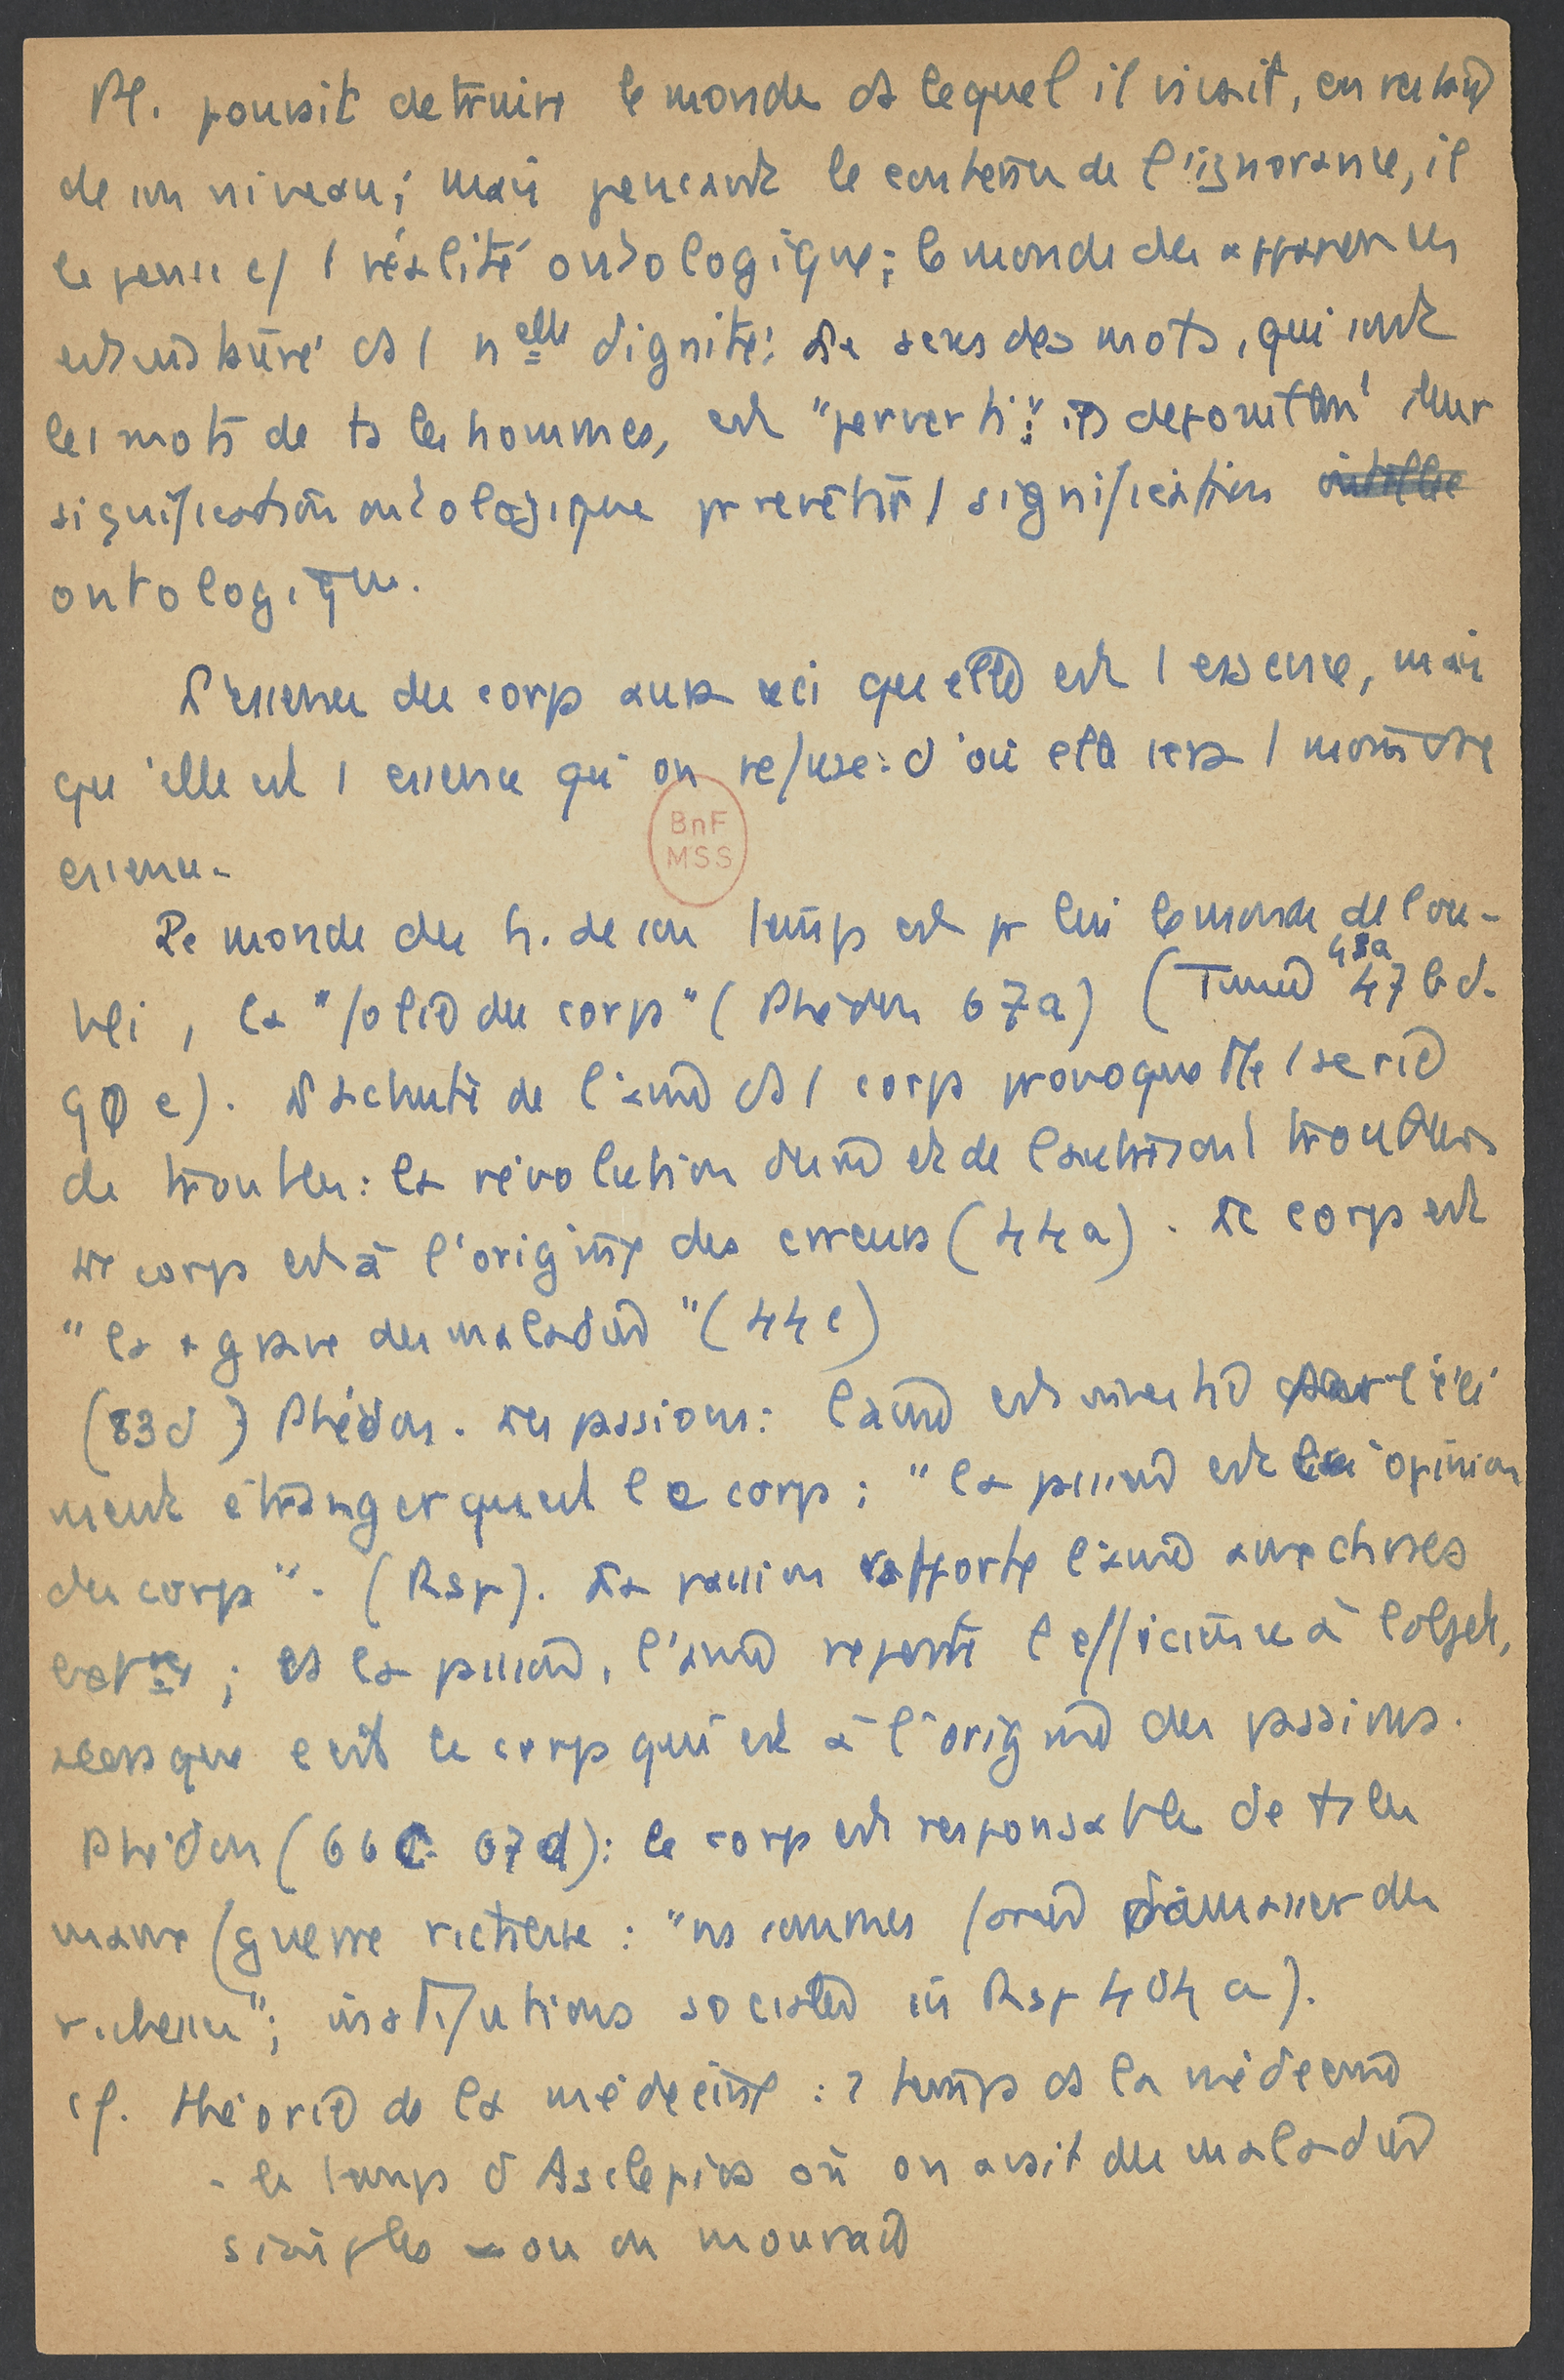 Pl. pouvait detruire le monde ds lequel il vivait, en restant
de son niveau; mais pensant le contenu de l'ignorance, il
le pense c/ 1 réalité ontologique; le monde des apparences
est instauré ds 1 nelle dignité: Le sens des mots, qui sont
les mots de ts les hommes, est "perverti":
signification ontologique pr revêtir 1 signification
ontologique.
L'essence du corps aura ceci que elle est 1 essence, mais
qu'elle est 1 essence qu'on refuse: d'où elle sera 1 moindre
essence.
Le monde des h. de son temps est pr lui le monde de l'ou-
bli, la "folie du corps" (Phédon 67a) (Timée 43a 47 bd.
90 e). La chute de l'âme ds 1 corps provoque tte 1 serie
de troubles: la révolution du même et de l'autre sont troublées
Le corps est à l'origine des erreurs (44a). Le corps est
" la + grave des maladies" (44c)
(83d) Phédon. Les passions: l'âme est investie par l'élé
ment étranger qu'est le corps; "la passion est l'opinion
du corps". (Rep). La passion rapporte l'âme aux choses
extres; ds la passion, l'âme reporte l'efficience à l'objet,
alors que c'est le corps qui est à l'origine des passions.
Phédon (66c 67d): le corps est responsable de ts les
maux (guerre richesse: "ns sommes forcés d'amasser des
richesses"; institutions sociales in Rep 404 a).
cf. théorie de la médecine: 2 temps ds la médecine
- le temps d'Asclepios où on avait des maladies
simples - ou on mourait
BnF
MSS